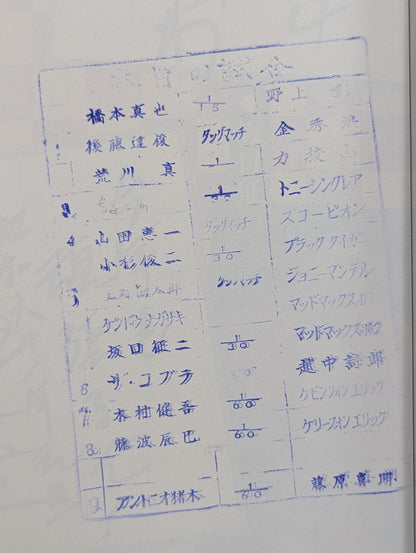 本日の試合
橋本真也 1/15 野上彰
後藤達俊 タッグマッチ 金秀洪
荒川真 1 力抜山
トニーシンクレア
4 山田恵一 タッグマッチ スコーピオン
小杉俊二 1/30 ブラックタイガー
タッグマッチ ジョニーマンテル
ケンドウナガサキ マッドマックス
坂口征二 1/30 マッドマックス
6 ザ・コブラ 越中詩郎
木村健吾 1/60 ケビンフォンエリック
8 藤波辰巳 1/60 ケリーフォンエリック
9 アントニオ猪木 1/60 藤原喜明